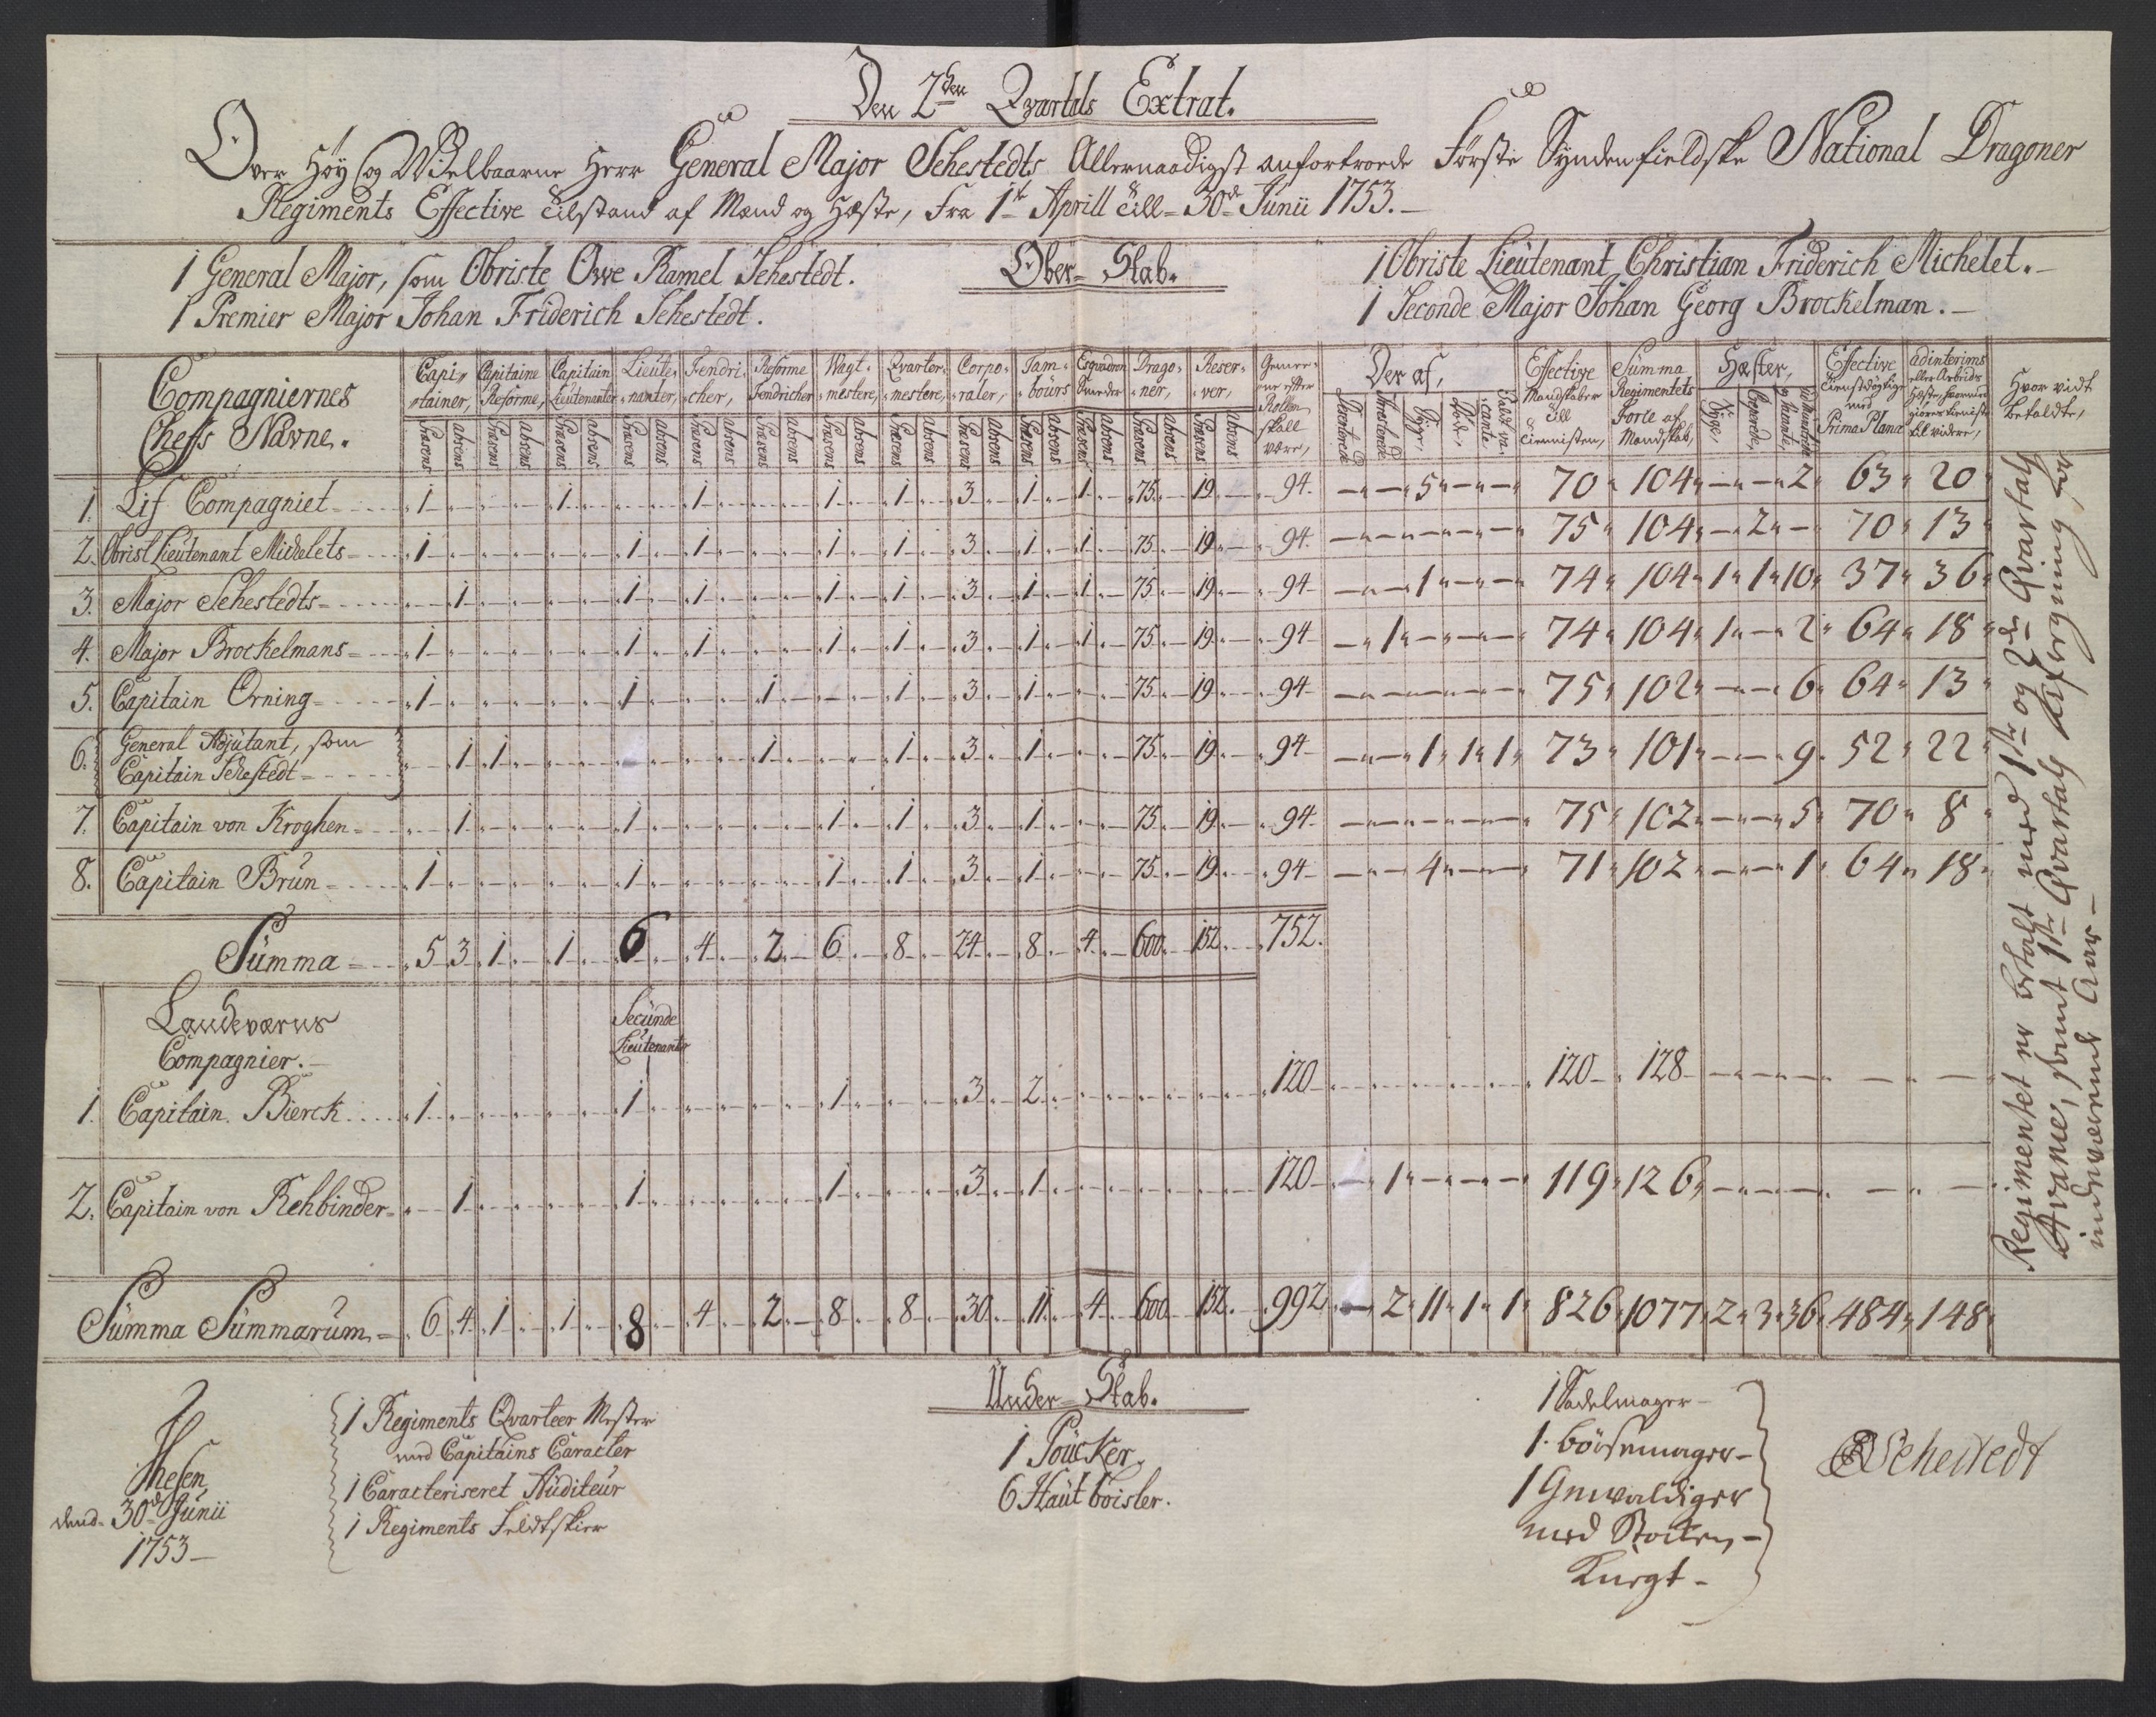 Den 2den Qvartals Extrat.
Over Høy og Welbaarne Herr General Major Sehestedts Allernaadigst anfortroede Første Syndenfieldske National Dragoner
Regiments Effective Tilstand af Mand og Hæste, Fra 1te Aprill till 30de Junii 1753.
1 General Major, som Obriste Owe Ramel Sehestedt.
Ober-Stab.
1 Obriste Lieutenant Christian Friderich Michelet.
1 Premier Major Johan Friderich Sehestedt.
1 Seconde Major Johan Georg Brockelman.
Compagniernes Cheffs Navne. Capitainer, Capitaine Reforme, Capitain Lieutenanter Lieutenanter, Fendricher, Reforme Fendricher Wagtmestere, Qvartermestere, Corporaler, Tambours Esqvadron Smeder Dragoner, Reserver, Gemeene efter Rollen skall være, Der af, Effective Mandskaber till Tienisten, Summa Regimentets Force af Mandskab, Hæster, Effective Tienstdygtige med Prima Plana ad interims eller Arbeids Hæste, til videre, Hvor vidt betaldte,
Præsens Absens Præsens Absens Præsens Absens Præsens Absens Præsens Absens Præsens Absens Præsens Absens Præsens Absens Præsens Absens Præsens Absens Præsens Absens Præsens Absens Præsens Absens Syge, Døde, Syge,
1. Lif Compagniet 1 1 1 1 1 3 1 1 75 19 94 5 70 104 2 63 20
2. Obrist Lieutenant Michelets 1 1 1 1 1 3 1 1 75 19 94 75 104 2 70 13
3. Major Sehestedts 1 1 1 1 1 3 1 1 75 19 94 1 74 104 1 1 10 37 36
4. Major Brockelmans 1 1 1 1 1 3 1 1 75 19 94 1 74 104 1 2 64 18
5. Capitain Orning 1 1 1 1 3 1 75 19 94 75 102 6 64 13
6. General Adjutant, som
Capitain Sehestedt 1 1 1 1 3 1 75 19 94 1 1 1 73 101 9 52 22
7. Capitain von Kroghen 1 1 1 1 3 1 75 19 94 75 102 5 70 8
8. Capitain Brün 1 1 1 1 3 1 75 19 94 4 71 102 1 64 18
Summa 5 3 1 1 6 4 2 6 8 24 8 4 600 152 752
Landeværns
Compagnier.
Secunde
Lieutenanter
1. Capitain Bierck 1 1 1 3 2 120 120 128
2. Capitain von Rehbinder 1 1 1 3 1 120 1 119 126
Summa Summarum 6 4 1 1 8 4 2 8 8 30 11 4 600 152 992 2 11 1 1 826 1077 2 3 36 484 148
Regimentet er betalt med 1ste og 2de Qvartals
samt 1ste Qvartals
indeværende Aar
Under-Stab.
1 Regiments Qvarteer Mester
med Capitains Caracter
1 Caracteriseret Auditeur
1 Regiments Feldtskier
1 Poucker
6 Hautboister.
1 Sadelmager
1 bøssemager
1 Gewaldiger
med Stocken-
Knegt
den 30de Junii
1753
Sehestedt